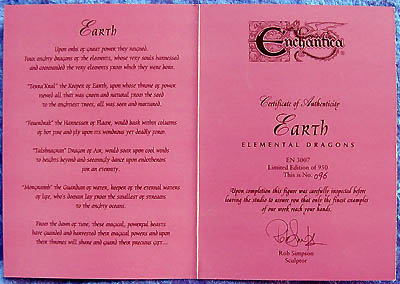 Earth
Upon orbs of great power they reigned.
Four mighty dragons of the elements, whose very souls harnessed
and commanded the very elements from which they were born.
the Keeper of Earth, upon whose throne of power
viewed all that was green and natural. From the seed
to the mightiest trees, all was seen and nurtured.
the Harnesser of Flame, would bask within columns
of hot fire and play upon its wondrous yet deadly power.
Dragon of Air, would soar upon cool winds
to heights beyond and seemingly dance upon enderthons
for an eternity.
the Guardian of water, keeper of the eternal waters
of life, who's domain lay from the smallest of streams
to the mighty oceans.
From the dawn of time, these magical, powerful beasts
have guarded and harvested their magical powers and upon
their thrones will share and guard their precious gift...
Enchantica
Certificate of Authenticity
Earth
ELEMENTAL DRAGONS
EN 3007
Limited Edition of 950
This is No. 096
Upon completion this figure was carefully inspected before
leaving the studio to assure you that only the finest examples
of our work reach your hands.
Rob Simpson
Sculptor